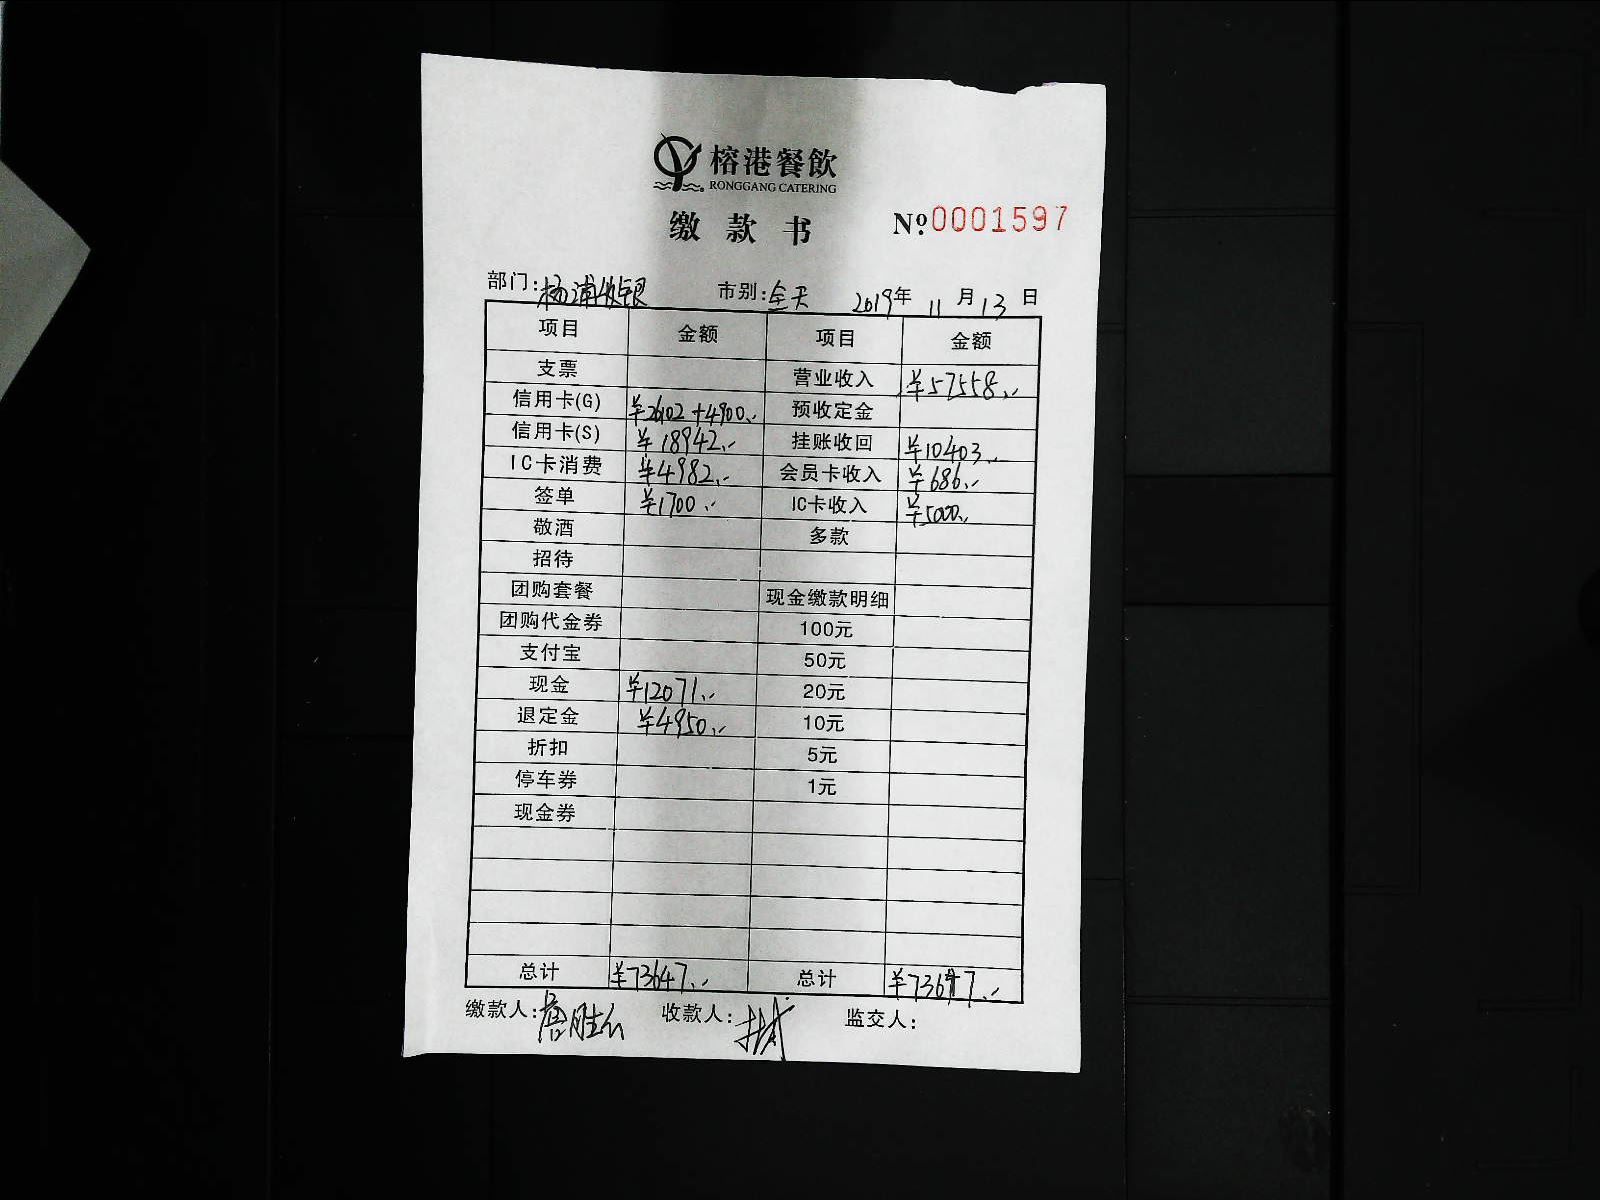 榕港餐飲
RONGGANG CATERING
缴款书 Nº:0001597
部门:杨浦收银 市别:全天 2019年11月13日
项目 金额 项目 金额
支票 营业收入 ¥57558.-
信用卡(G) ¥26102+4900.- 预收定金
信用卡(S) ¥18942.- 挂账收回 ¥10403.-
IC卡消费 ¥4982.- 会员卡收入 ¥686.-
签单 ¥1700.- IC卡收入 ¥5000.-
敬酒 多款
招待
团购套餐 现金缴款明细
团购代金券 100元
支付宝 50元
现金 ¥12071.- 20元
退定金 ¥4950.- 10元
折扣 5元
停车券 1元
现金券
总计 ¥73647.- 总计 ¥73647.-
缴款人:唐胜云 收款人: 监交人: